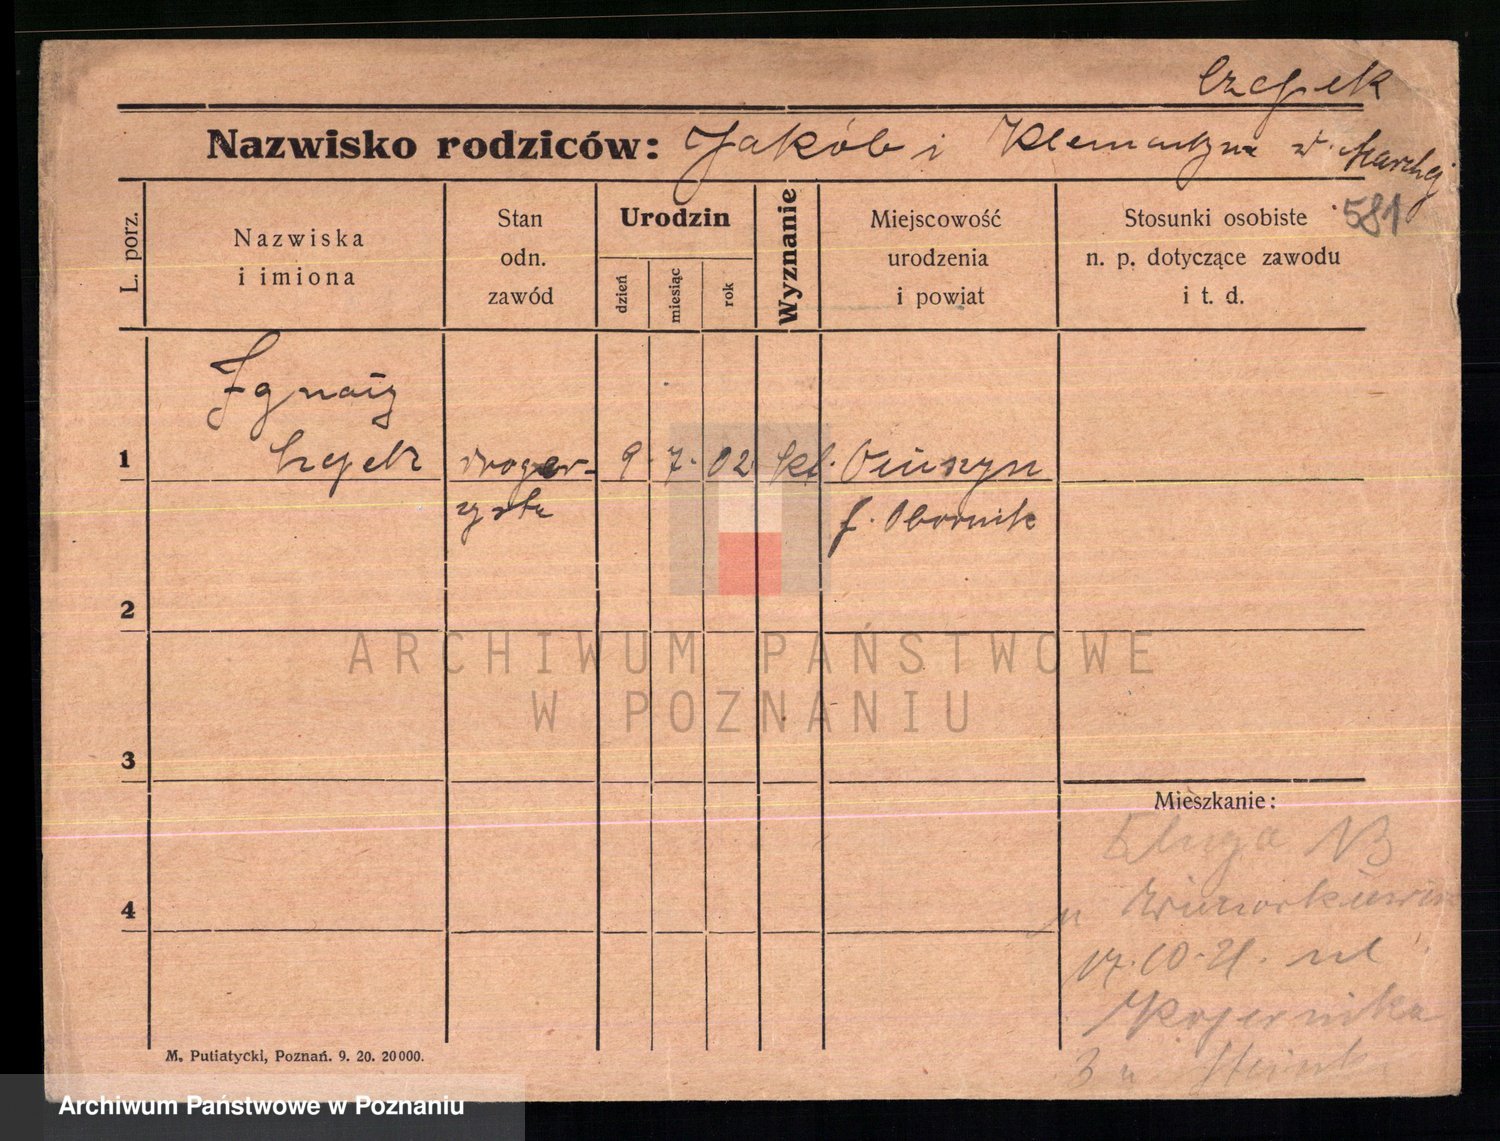 Czapek
Nazwisko rodziców: Jakób i Klementyna
581
L. porz.
Nazwiska
i imiona
Stan
odn.
zawód
Urodzin
dzień
miesiąc
rok
Wyznanie
Miejscowość
urodzenia
i powiat
Stosunki osobiste
n. p. dotyczące zawodu
i t. d.
Ignacy
1 Czapek droger- 9. 7. 02 kt.
zysta
p. Obornik
2
ARCHIWUM PAŃSTWOWE
W POZNANIU
3
Mieszkanie:
Długa
4
u
17.10.21. ul
Kopernika
3 u
M. Putiatycki, Poznań. 9. 20. 20000.
Archiwum Państwowe w Poznaniu